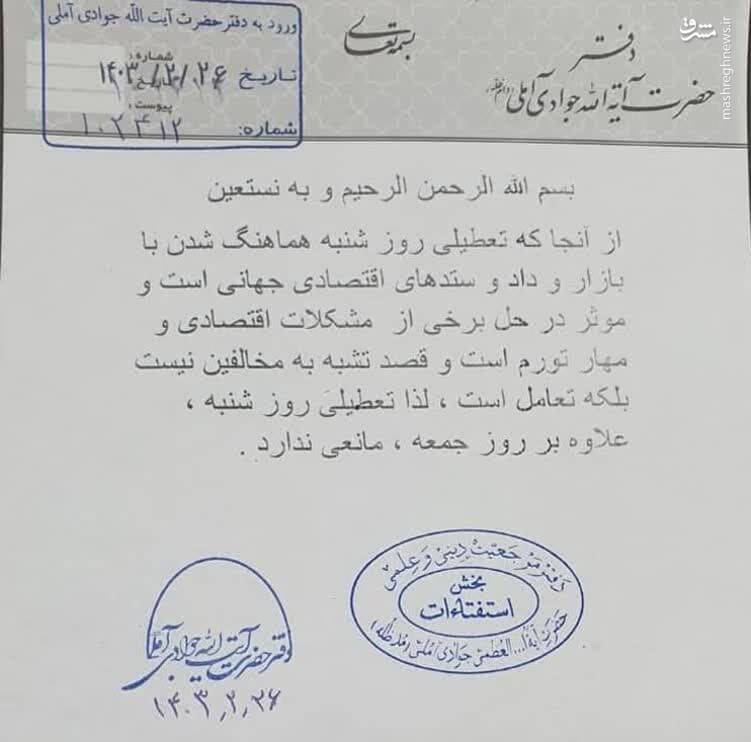 ورود به دفتر حضرت آیت الله جوادی آملی
شماره:
تاریخ ۱۴۰۳/۲/۲۶
تاریخ:
پیوست:
شماره: ۱۰۲۴۱۲
بسمه تعالی
دفتر
حضرت آیة الله جوادی آملی (دام ظله)
مشرق
mashreghnews.ir
بسم الله الرحمن الرحیم و به نستعین
از آنجا که تعطیلی روز شنبه هماهنگ شدن با
بازار و داد و ستدهای اقتصادی جهانی است و
موثر در حل برخی از مشکلات اقتصادی و
مهار تورم است و قصد تشبه به مخالفین نیست
بلکه تعامل است ، لذا تعطیلی روز شنبه ،
علاوه بر روز جمعه ، مانعی ندارد .
دفتر مرجعیت دینی و علمی
بخش
استفتاءات
حضرت آیة ا... العظمی جوادی آملی (مدظله)
دفتر حضرت آیت الله جوادی آملی
۱۴۰۳,۲,۲۶